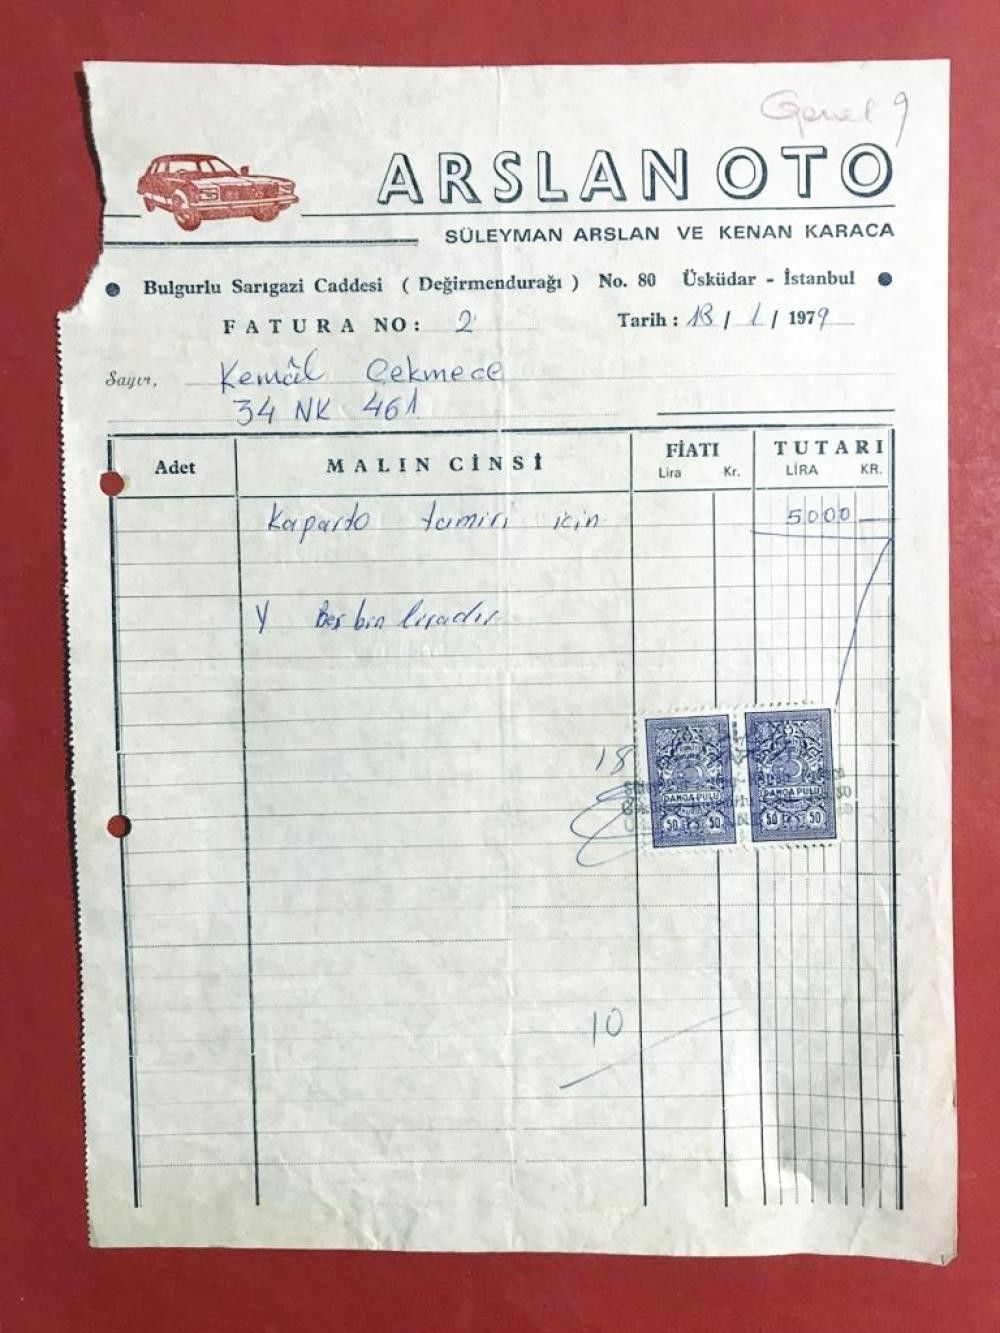 Genel 9
ARSLAN OTO
SÜLEYMAN ARSLAN VE KENAN KARACA
Bulgurlu Sarıgazi Caddesi ( Değirmendurağı ) No. 80 Üsküdar - İstanbul
FATURA NO: 2 Tarih : 18 / 1 / 1979
Sayın, Kemâl Cekmece
34 NK 461
Adet MALIN CİNSİ FİATI Lira Kr. TUTARI LİRA KR.
Kaparto tamiri icin 5000
Y Beş bin liradır
18
DAMGA PULU DAMGA PULU
50 50 50 50
10